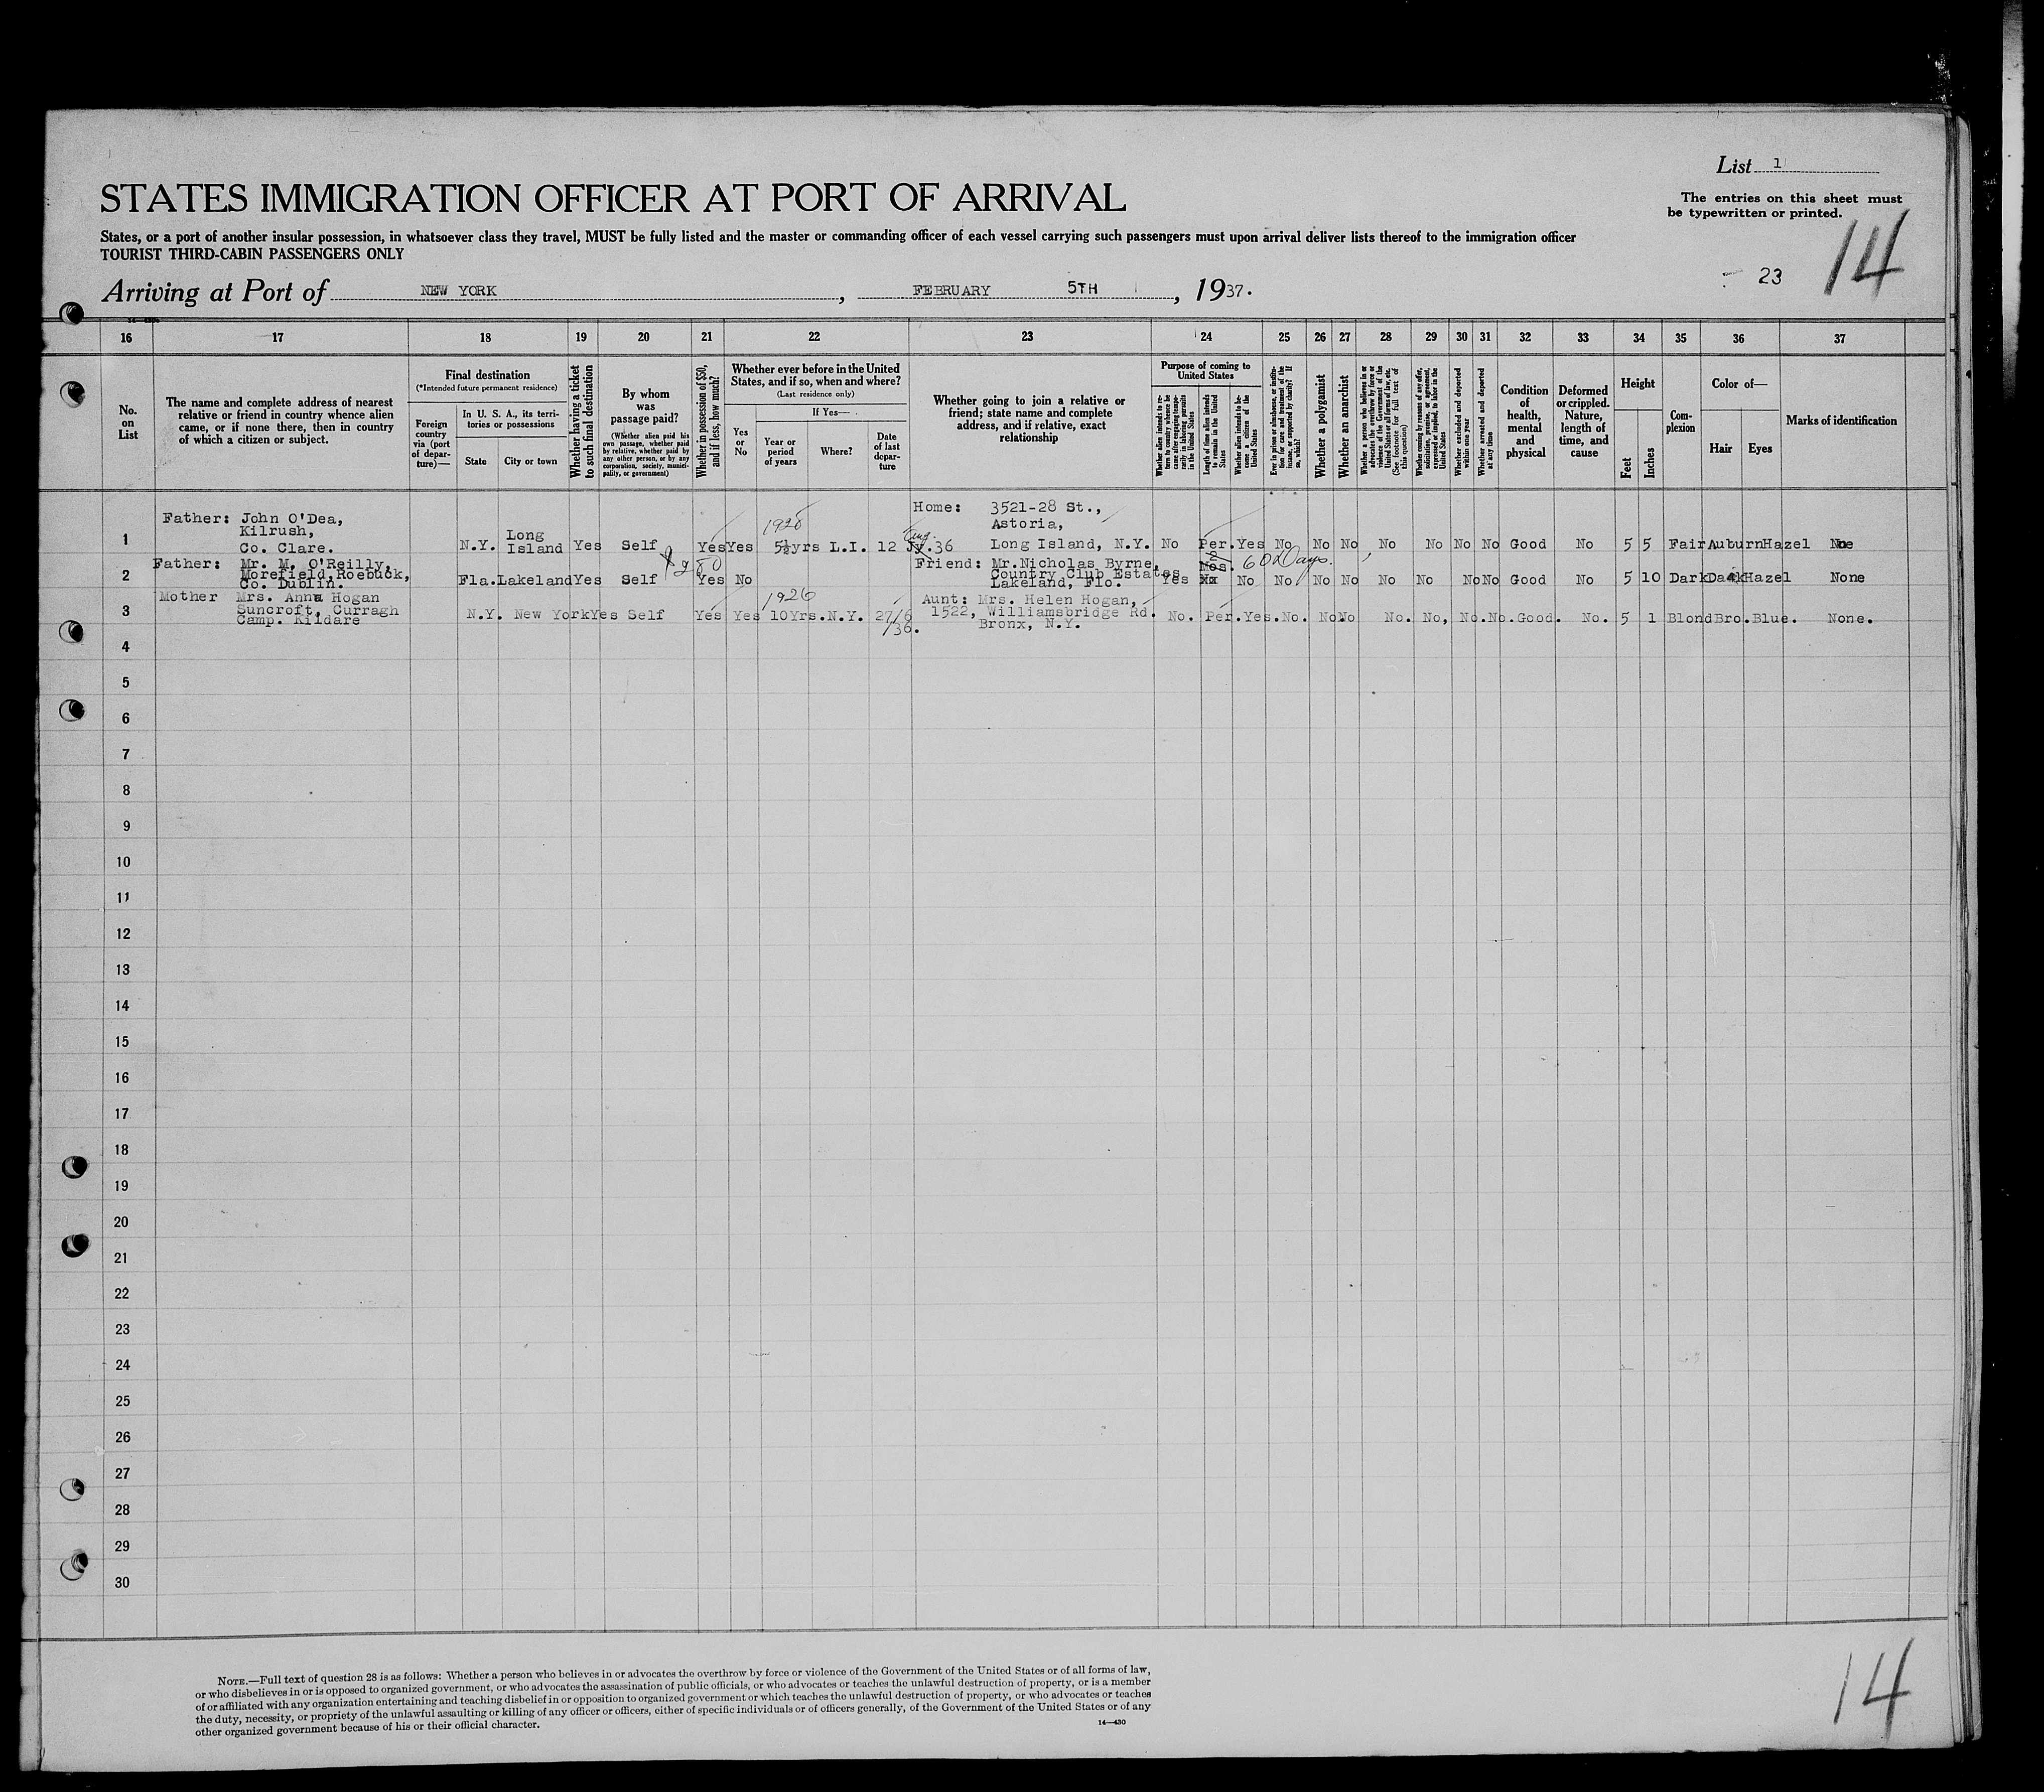 List 1
STATES IMMIGRATION OFFICER AT PORT OF ARRIVAL
The entries on this sheet must
be typewritten or printed.
States, or a port of another insular possession, in whatsoever class they travel, MUST be fully listed and the master or commanding officer of each vessel carrying such passengers must upon arrival deliver lists thereof to the immigration officer
TOURIST THIRD-CABIN PASSENGERS ONLY
23
14
Arriving at Port of NEW YORK, FEBRUARY 5TH, 1937.
16 17 18 19 20 21 22 23 24 25 26 27 28 29 30 31 32 33 34 35 36 37
No.
on
List
The name and complete address of nearest
relative or friend in country whence alien
came, or if none there, then in country
of which a citizen or subject.
Final destination
(*Intended future permanent residence)
Foreign
country
via (port
of depar-
ture)—
In U. S. A., its terri-
tories or possessions
State
City or town
Whether having a ticket
to such final destination
By whom
was
passage paid?
(Whether alien paid his
own passage, whether paid
by relative, whether paid by
any other person, or by any
corporation, society, munici-
pality, or government)
Whether in possession of $50,
and if less, how much?
Whether ever before in the United
States, and if so, when and where?
(Last residence only)
Yes
or
No
If Yes—
Year or
period
of years
Where?
Date
of last
depar-
ture
Whether going to join a relative or
friend; state name and complete
address, and if relative, exact
relationship
Purpose of coming to
United States
Whether alien intends to re-
turn to country whence he
came after engaging tempo-
rarily in laboring pursuits
in the United States
Length of time alien intends
to remain in the United
States
Whether alien intends to be-
come a citizen of the
United States
Ever in prison or almshouse, or institu-
tion for care and treatment of the
insane, or supported by charity? If
so, which?
Whether a polygamist
Whether an anarchist
Whether a person who believes in or
advocates the overthrow by force or
violence of the Government of the
United States or all forms of law, etc.
(See footnote for full text of
this question)
Whether coming by reason of any offer,
solicitation, promise, or agreement,
expressed or implied, to labor in the
United States
Whether excluded and deported
within one year
Whether arrested and deported
at any time
Condition
of
health,
mental
and
physical
Deformed
or crippled.
Nature,
length of
time, and
cause
Height
Feet
Inches
Com-
plexion
Color of—
Hair
Eyes
Marks of identification
1
Father: John O'Dea,
Kilrush,
Co. Clare.
N.Y. Long
Island Yes Self Yes Yes 1925
5½yrs L.I. 12 Jy.36
Aug.
Home: 3521-28 St.,
Astoria,
Long Island, N.Y. No Per. Yes No No No No No No No Good No 5 5 Fair Auburn Hazel None
2
Father: Mr. M. O'Reilly,
Morefield, Roebuck,
Co. Dublin.
Fla. Lakeland Yes Self $280 Yes No
Friend: Mr. Nicholas Byrne,
Country Club Estates
Lakeland, Flo. Yes Mos. 60 Days. No No No No No No No No Good No 5 10 Dark Dark Hazel None
3
Mother Mrs. Anna Hogan
Suncroft, Curragh
Camp. Kildare
N.Y. New York Yes Self Yes Yes 1926
10Yrs. N.Y. 27/6
/36.
Aunt: Mrs. Helen Hogan,
1522, Williamsbridge Rd.
Bronx, N.Y. No. Per. Yes. No. No No No. No, No. No. Good. No. 5 1 Blond Bro. Blue. None.
4
5
6
7
8
9
10
11
12
13
14
15
16
17
18
19
20
21
22
23
24
25
26
27
28
29
30
NOTE.—Full text of question 28 is as follows: Whether a person who believes in or advocates the overthrow by force or violence of the Government of the United States or of all forms of law,
or who disbelieves in or is opposed to organized government, or who advocates the assassination of public officials, or who advocates or teaches the unlawful destruction of property, or is a member
of or affiliated with any organization entertaining and teaching disbelief in or opposition to organized government or which teaches the unlawful destruction of property, or who advocates or teaches
the duty, necessity, or propriety of the unlawful assaulting or killing of any officer or officers, either of specific individuals or of officers generally, of the Government of the United States or of any
other organized government because of his or their official character.
14—430
14